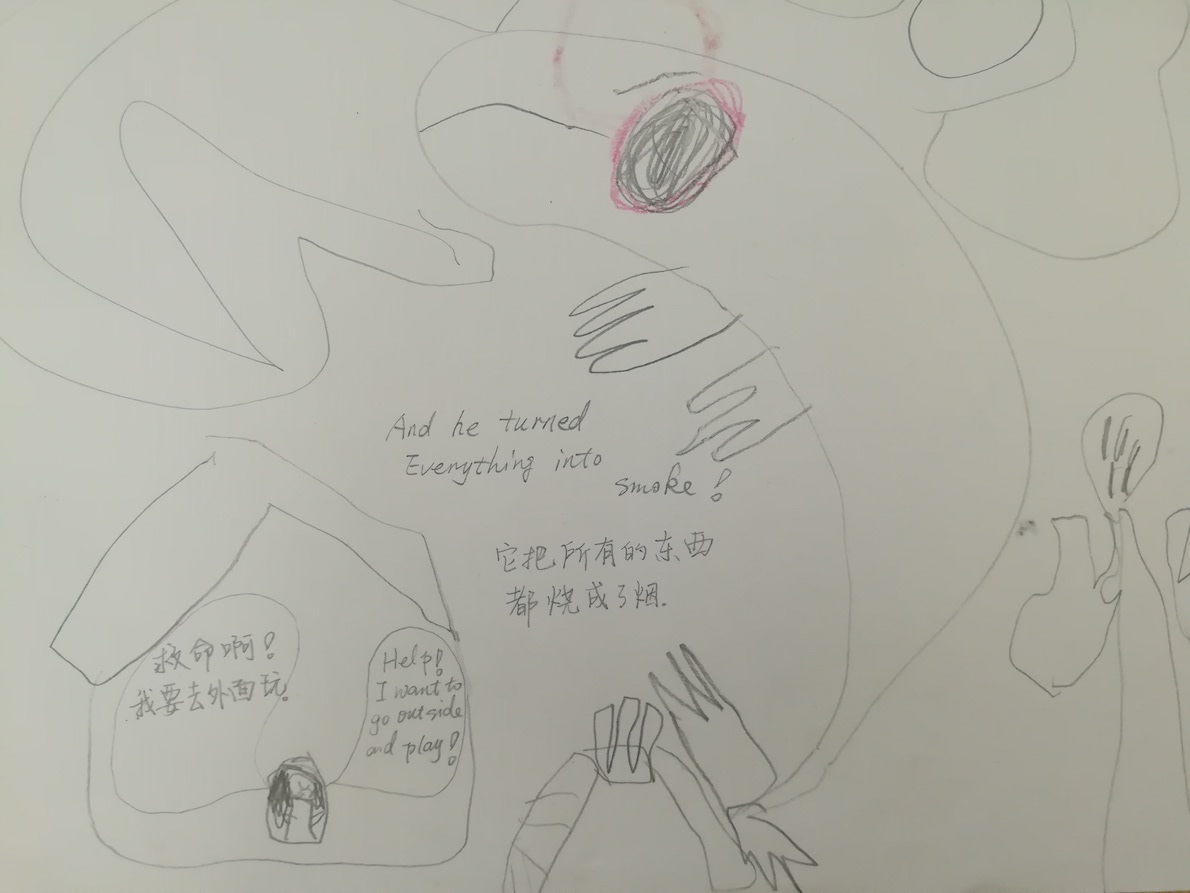 And he turned
Everything into
smoke!
它把所有的东西
都烧成了烟.
救命啊!
我要去外面玩。
Help!
I want to
go outside
and play!